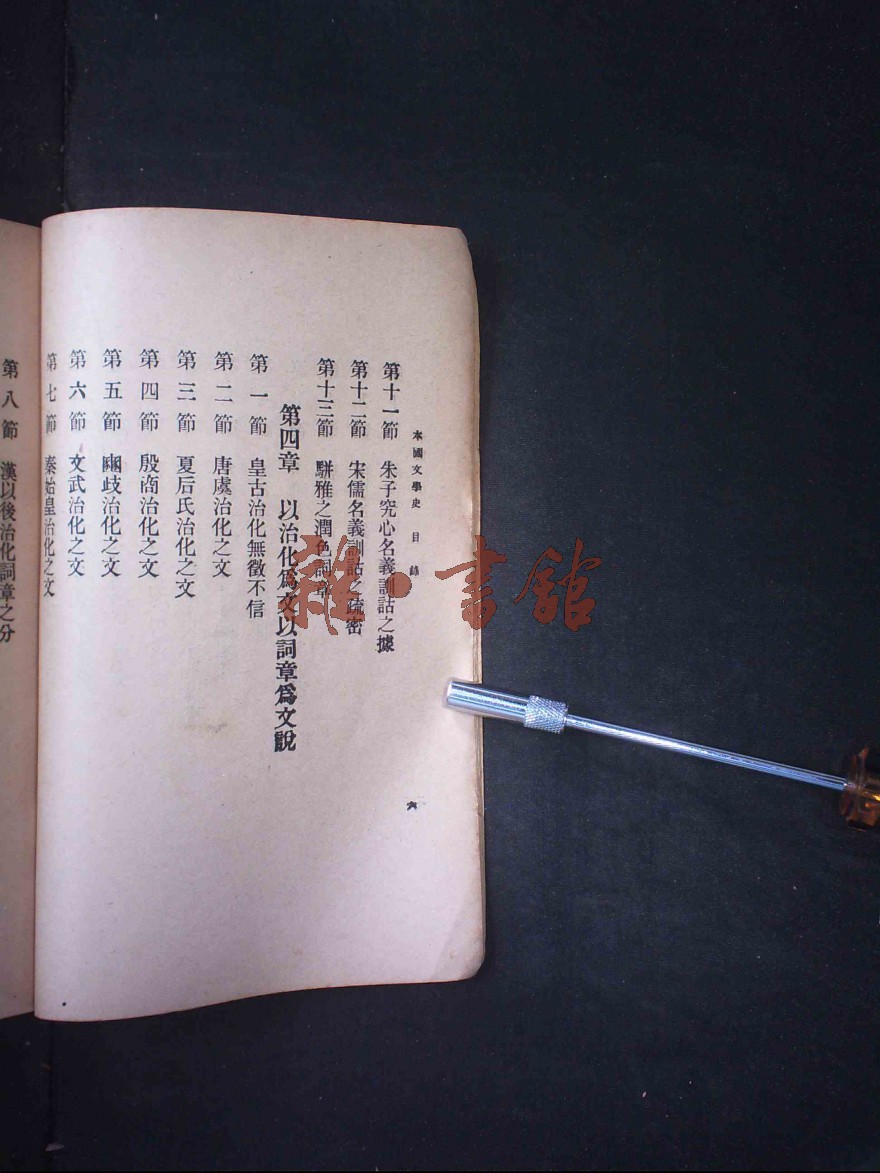 本國文學史 目錄 六
第十一節 朱子究心名義訓詁之據
第十二節 宋儒名義訓詁之疏密
第十三節 駢雅之潤色詞章
第四章 以治化爲文以詞章爲文說
第一節 皇古治化無徵不信
第二節 唐虞治化之文
第三節 夏后氏治化之文
第四節 殷商治化之文
第五節 豳歧治化之文
第六節 文武治化之文
第七節 秦始皇治化之文
第八節 漢以後治化詞章之分
雜·書館